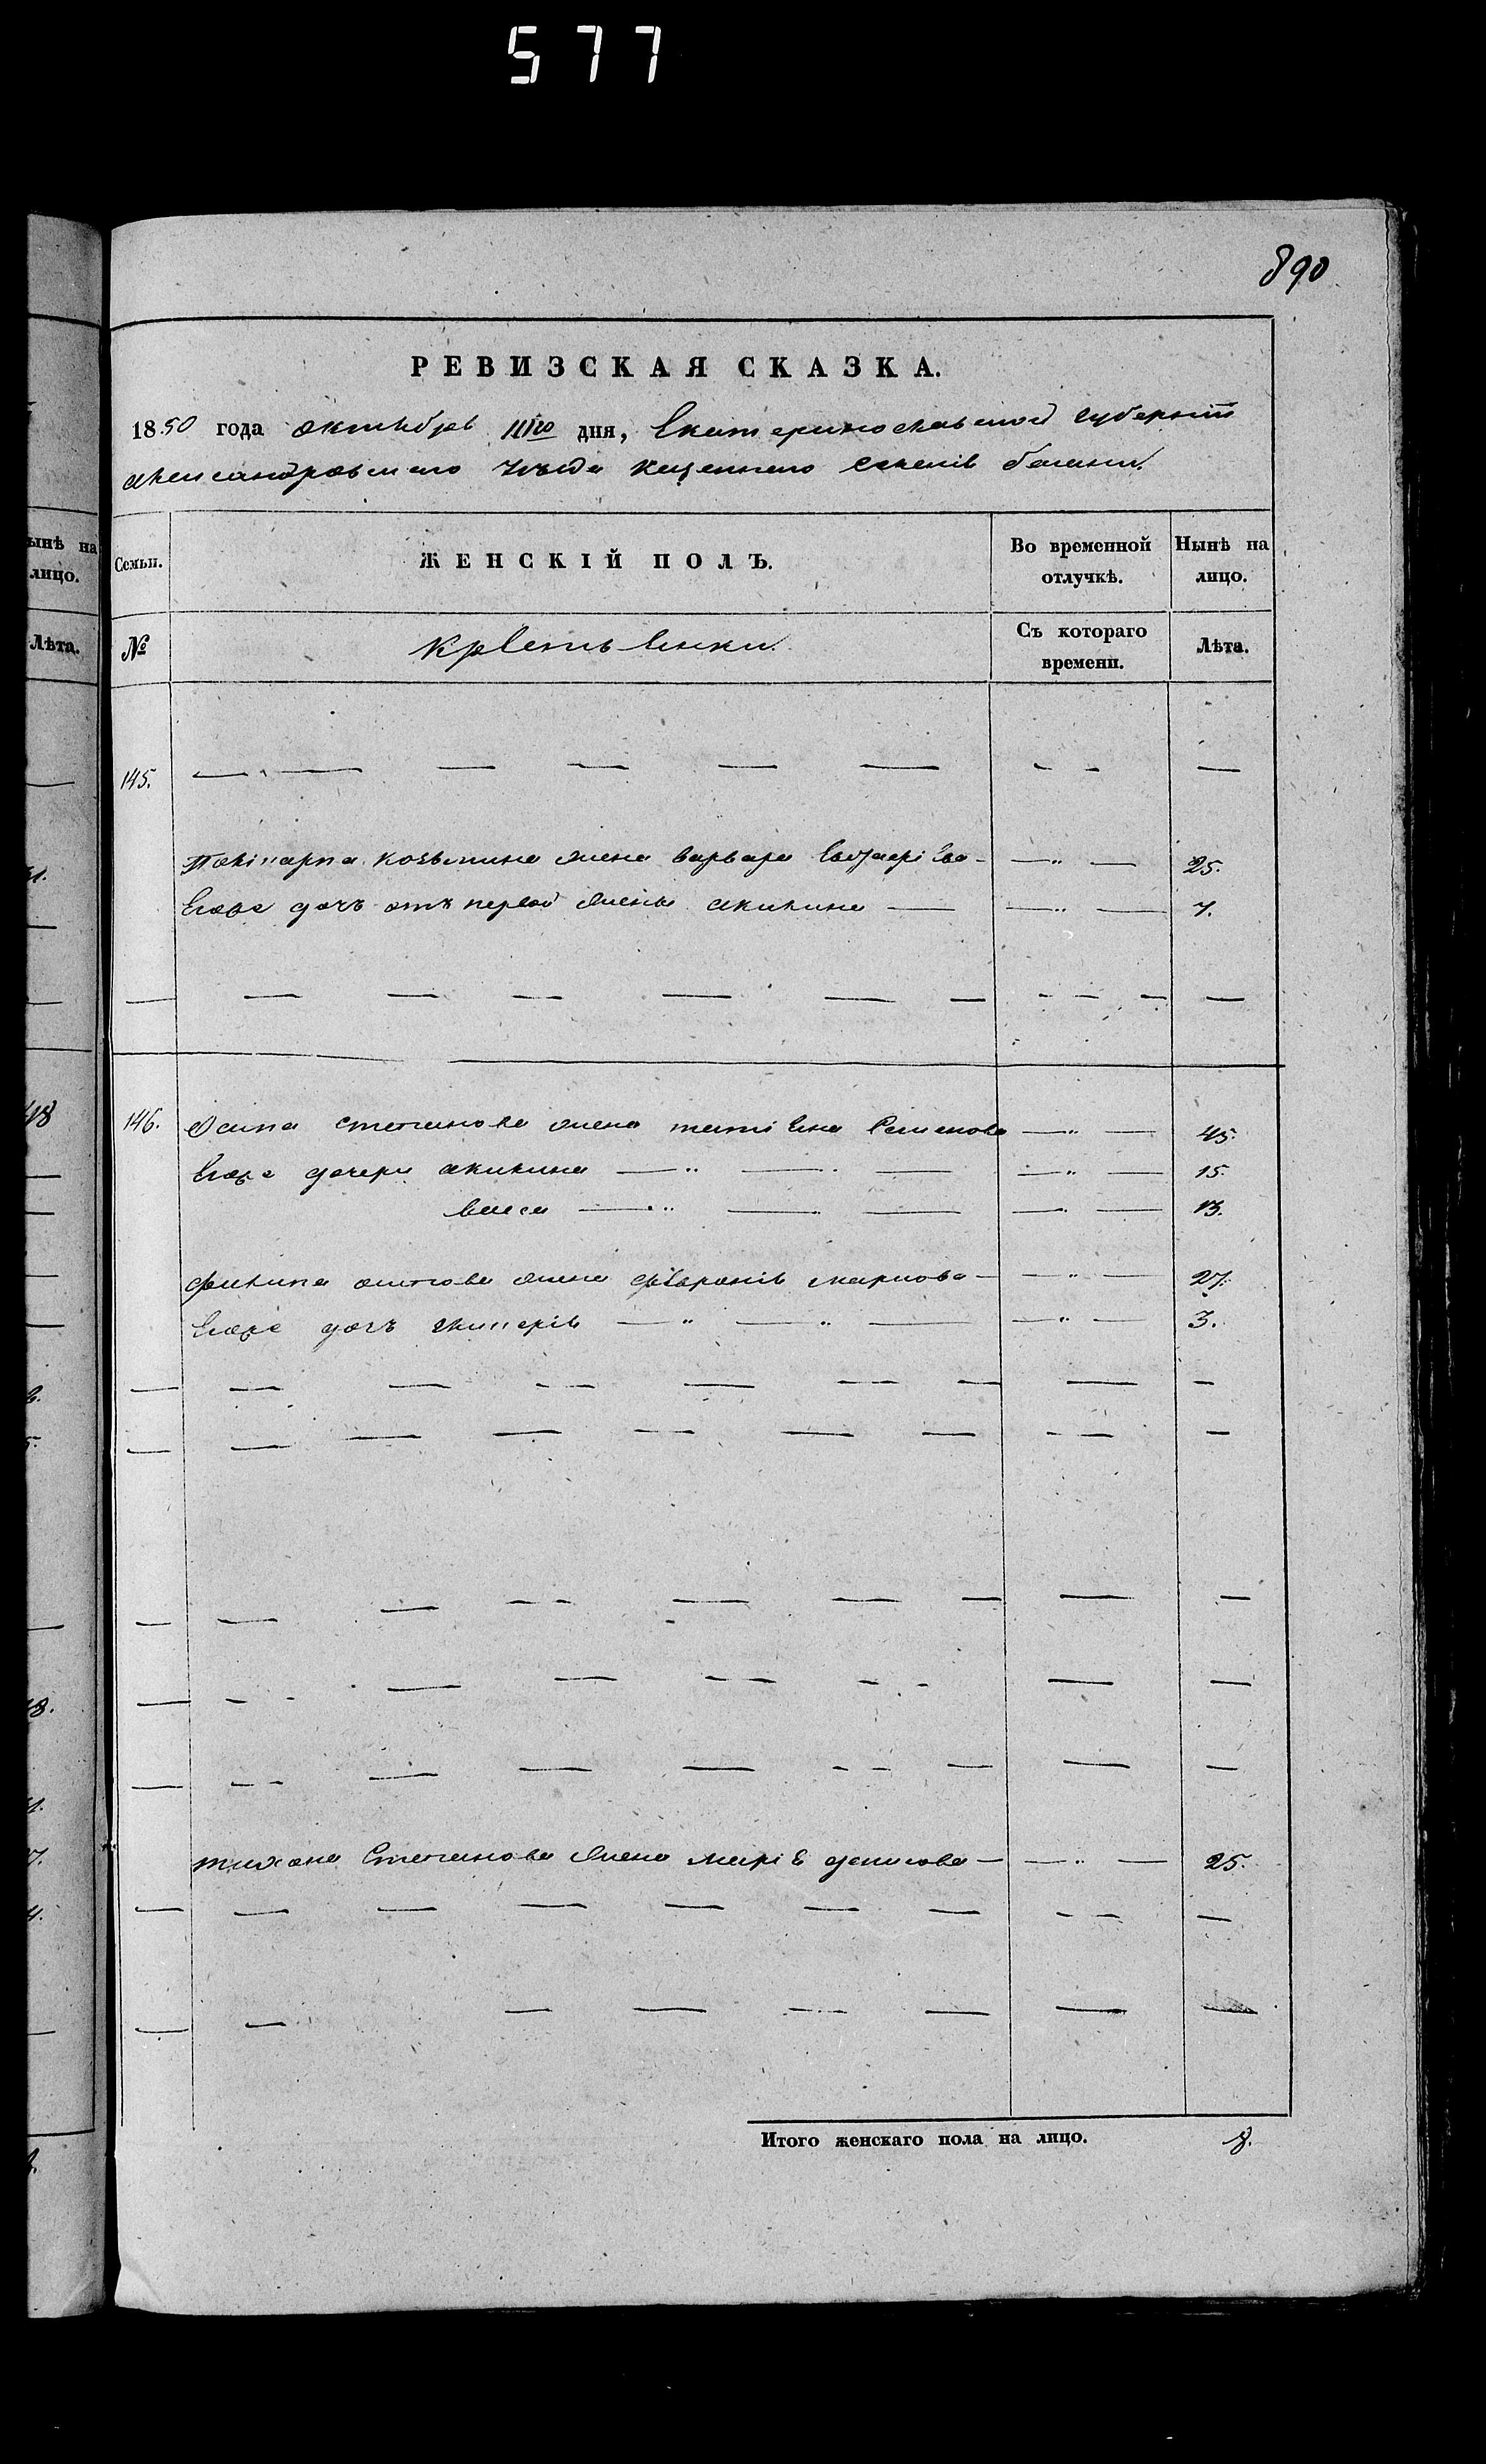 577
890
РЕВИЗСКАЯ СКАЗКА.
1850 года октября 11го дня, Екатеринославской губерніи
александровскаго уѣзда казеннаго селенія белики
Семьи. ЖЕНСКІЙ ПОЛЪ. Во временной отлучкѣ. Нынѣ на лицо.
№ Крестьянки Съ котораго времени. Лѣта.
145. — — — — — — — — —
Поликарпа козьмина жена варвара — " — 25.
Егоже дочь отъ первой жены акилина — — " — 7.
— — — — — — — — — — —
146. Осипа степанова жена татіяна Семенова — " — 45.
Егоже дочери акилина — " — — — " — 15.
васса — " — " — — " — 13.
филипа осипова жена февронія маркова — — " — 27.
Егоже дочь гликерія — " — " — — " — 3.
тихона Степанова жена марія денисова — — " — 25.
Итого женскаго пола на лицо. 8.
ынѣ на
лицо.
Лѣта.